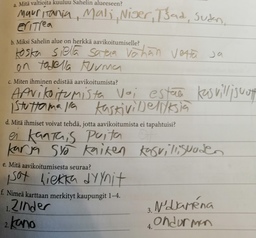 a. Mitä valtioita kuuluu Sahelin alueeseen?
Mauritania, Mali, Niger, Tšad, Sudan,
Eritrea
b. Miksi Sahelin alue on herkkä aavikoitumiselle?
koska siellä sataa vähän vettä ja
on
c. Miten ihminen edistää aavikoitumista?
kasvillisuutt
kasvivihelliksiä
d. Mitä ihmiset voivat tehdä, jotta aavikoitumista ei tapahtuisi?
ei puita
karja syö kaiken kasvillisuuden
e. Mitä aavikoitumisesta seuraa?
isot hiekka dyynit
f. Nimeä karttaan merkityt kaupungit 1–4.
1. Zinder
3. N'djaména
2. kano
4.